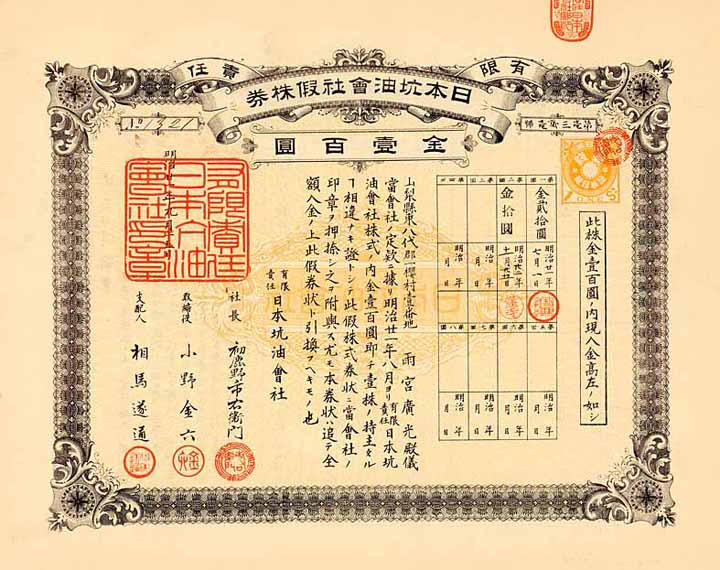 有限責任
日本坑油會社假株券
No 1321
金壹百圓
此株金壹百圓ノ内現入金高左ノ如シ
第一回
金貳拾圓
明治廿一年
七月一日
第二回
金拾圓
明治廿二年
十月廿五日
第三回
明治 年
月 日
第四回
明治 年
月 日
第五回
明治 年
月 日
第六回
明治 年
月 日
第七回
明治 年
月 日
第八回
明治 年
月 日
山梨縣東八代郡 櫻村壹番地 雨宮廣光殿儀
當會社ノ定款ニ據リ明治廿一年八月ヨリ有限責任日本坑
油會社株式ノ内金壹百圓即チ壹株ノ持主タル
ヿ相違ナキ證トシテ此假株式券状ニ當會社ノ
印章ヲ押捺シ之ヲ附與ス尤モ本券状ハ追テ全
額入金ノ上此假券状ト引換フヘキモノ也
有限責任日本坑油會社
社長 初鹿野市右衛門
取締役 小野金六
支配人 相馬遂通
有限責任
日本坑油
會社之章